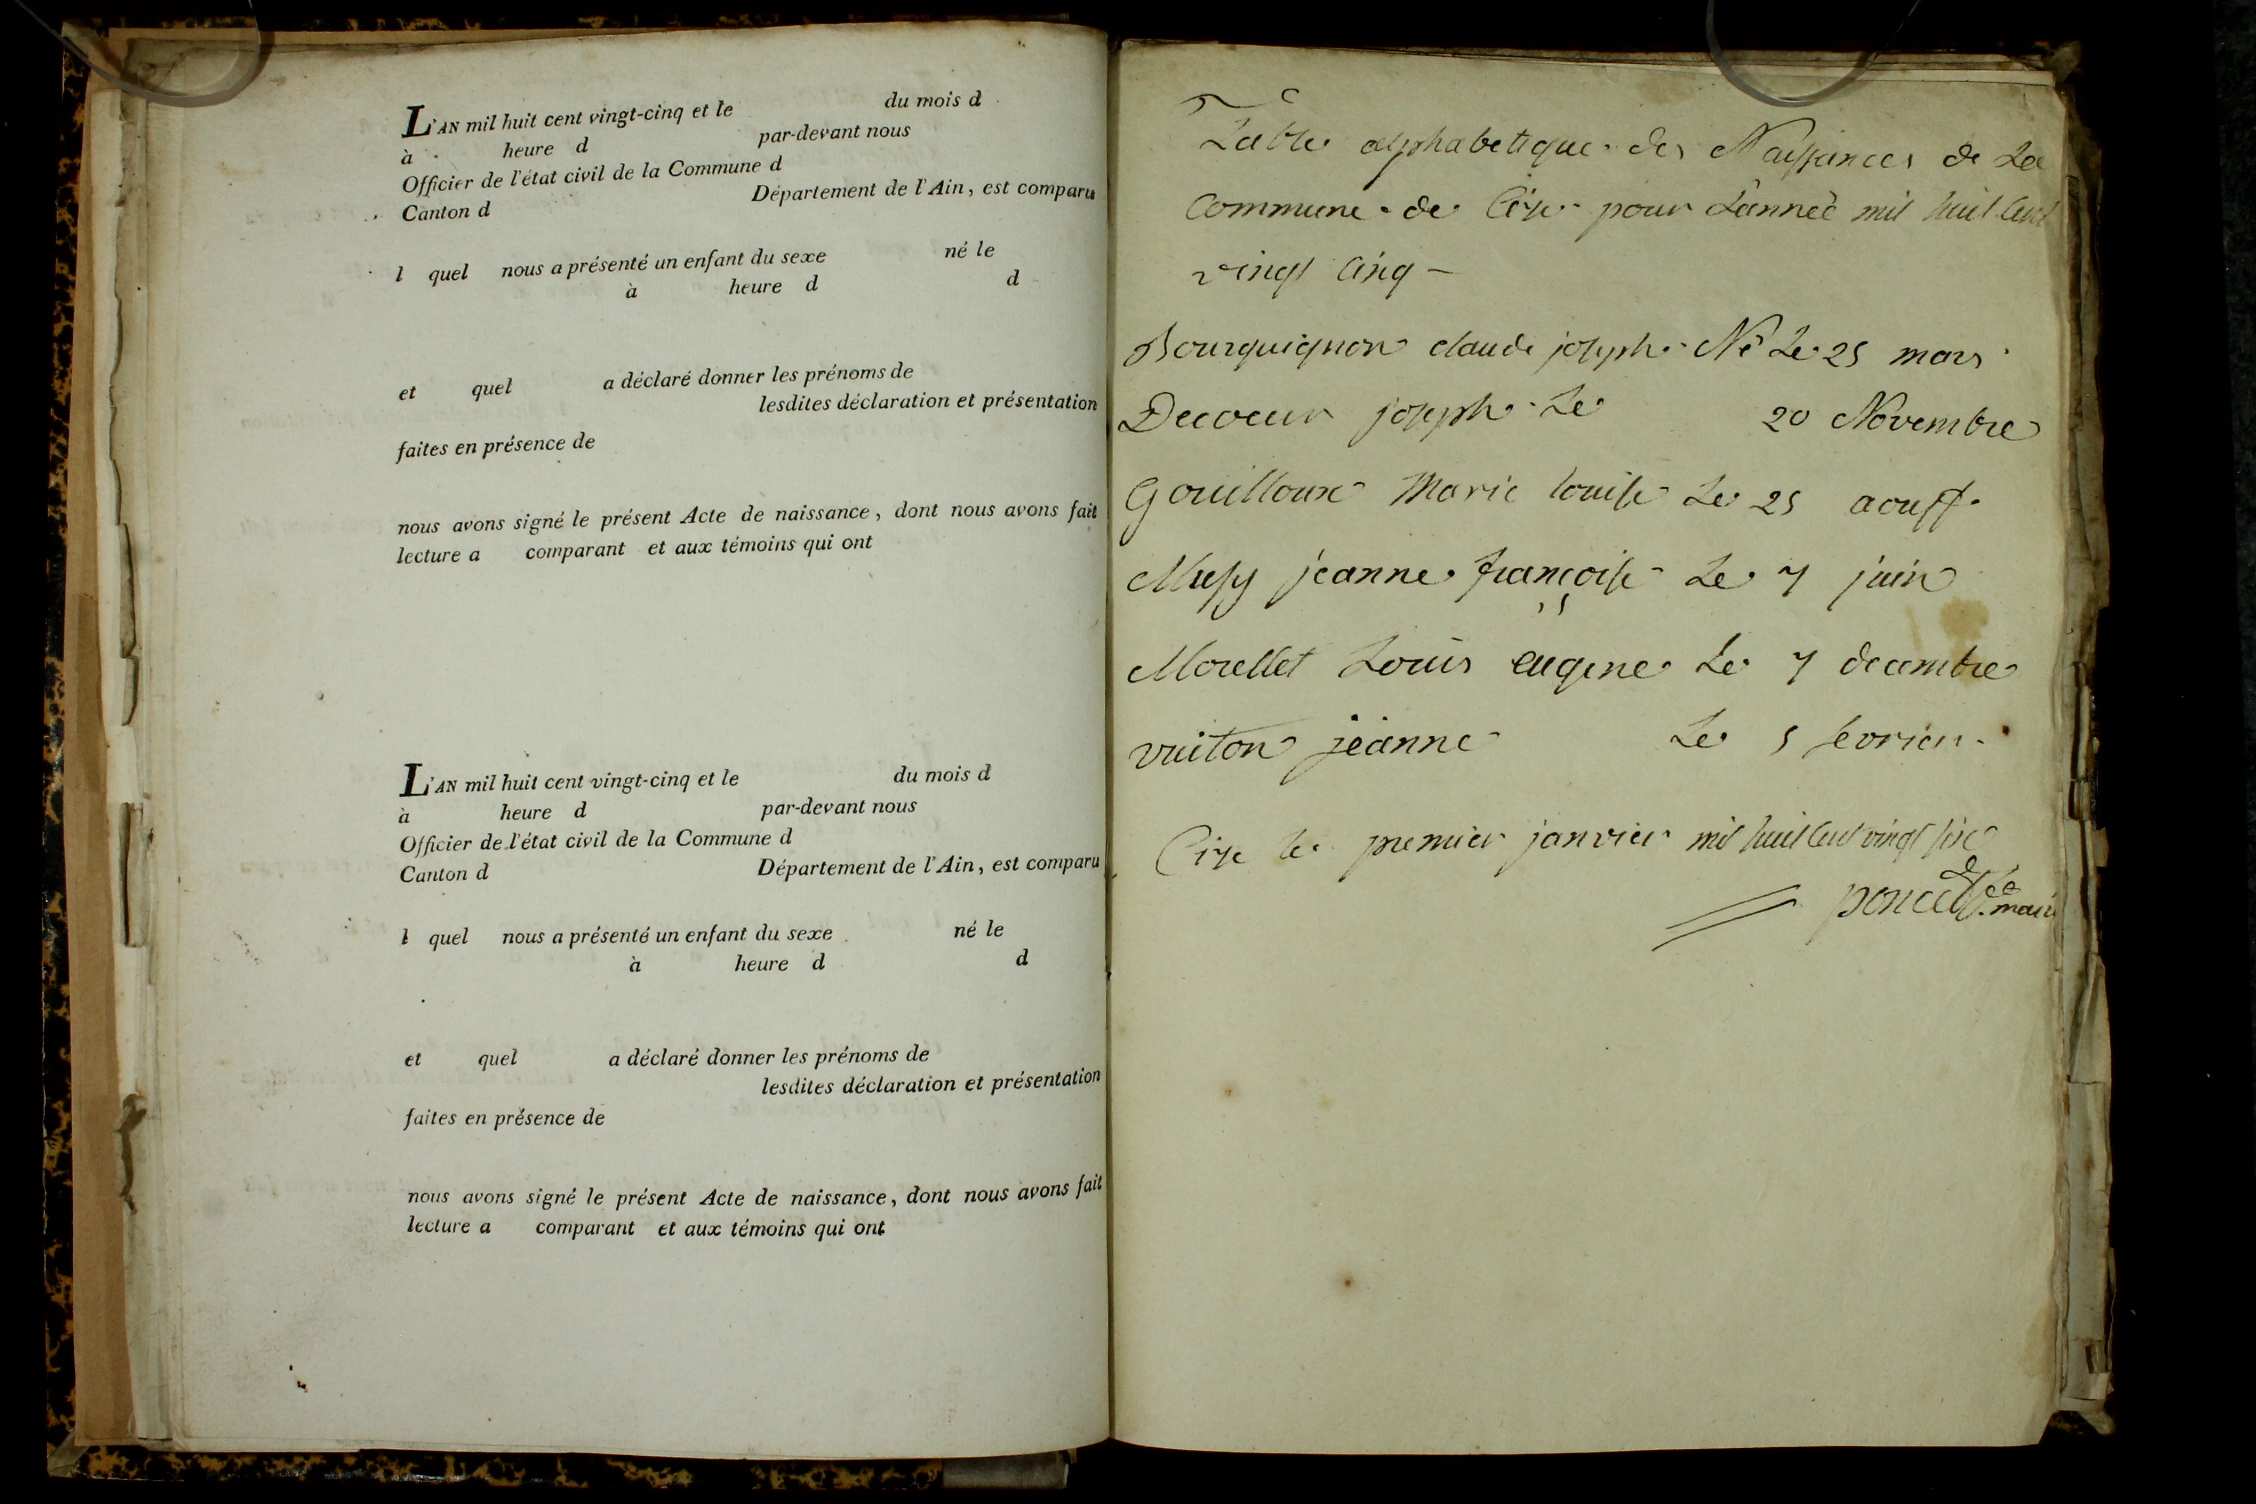 L'AN mil huit cent vingt-cinq et le du mois d
à heure d par-devant nous
Officier de l'état civil de la Commune d
Canton d Département de l'Ain, est comparu
l quel nous a présenté un enfant du sexe né le
à heure d d
et quel a déclaré donner les prénoms de
lesdites déclaration et présentation
faites en présence de
nous avons signé le présent Acte de naissance, dont nous avons fait
lecture a comparant et aux témoins qui ont
L'AN mil huit cent vingt-cinq et le du mois d
à heure d par-devant nous
Officier de l'état civil de la Commune d
Canton d Département de l'Ain, est comparu
l quel nous a présenté un enfant du sexe né le
à heure d d
et quel a déclaré donner les prénoms de
lesdites déclaration et présentation
faites en présence de
nous avons signé le présent Acte de naissance, dont nous avons fait
lecture a comparant et aux témoins qui ont
Table alphabetique des Naissances de La
Commune de Cize pour L'année mil huit Cent
vingt Cinq
Bourguignon claude joseph Né Le 25 mars
Decoeur joseph Le 20 Novembre
Gouilloux Marie louise Le 25 aoust
Musy jeanne françoise Le 7 juin
Morellet Louis eugene Le 7 decembre
vuiton jeanne Le 5 fevrier
Cize le premier janvier mil huit Cent vingt six
poncet maire